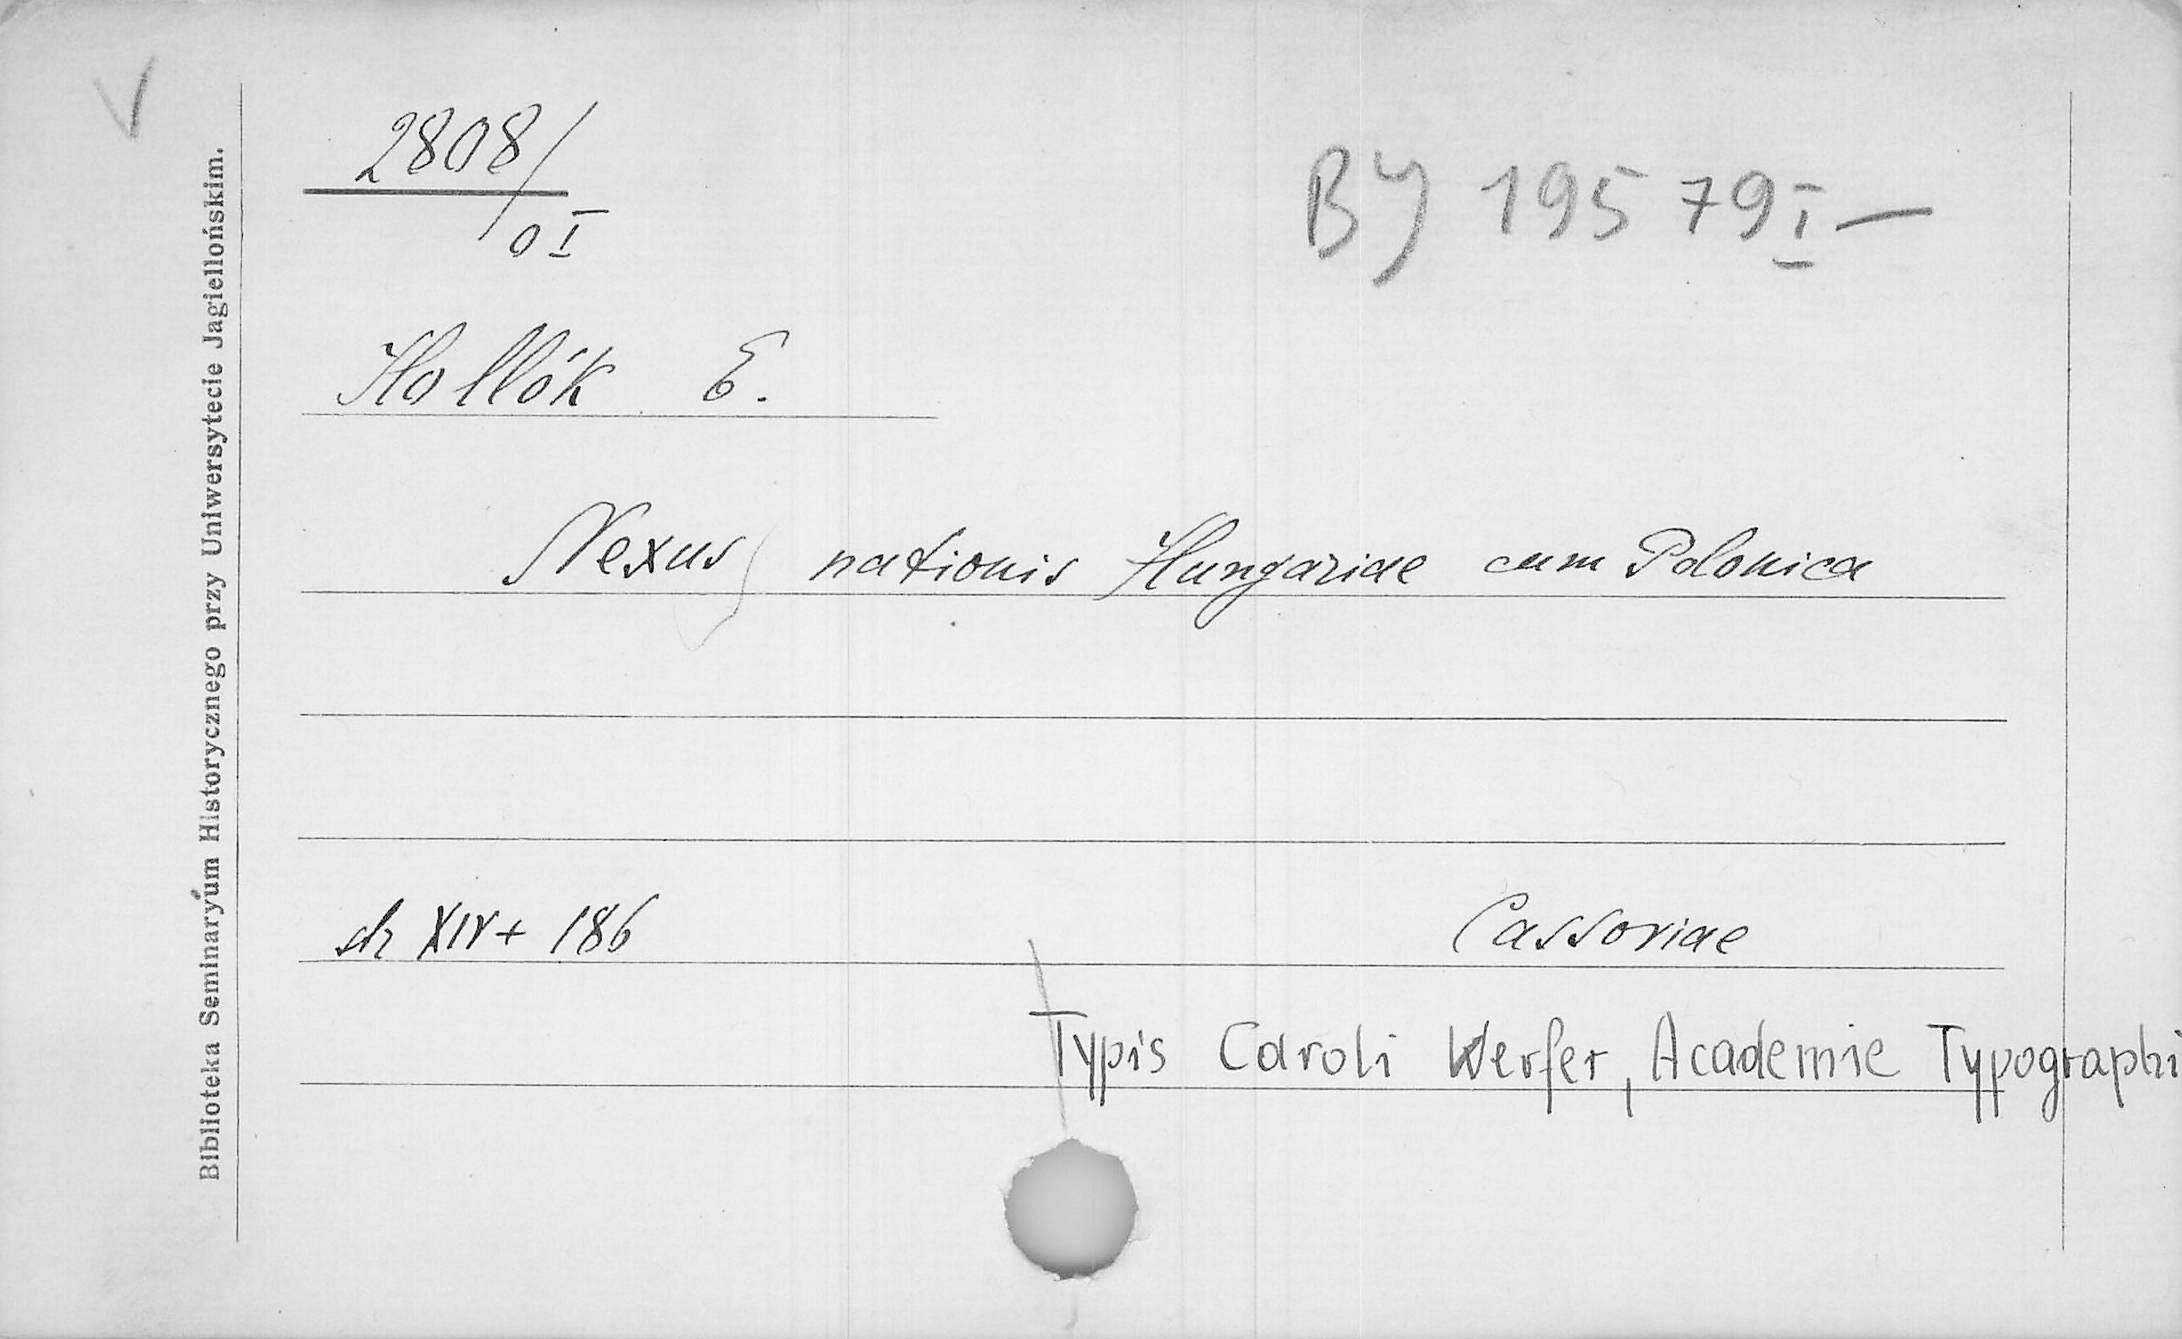 V
2808/
0 I
BJ 195 79 I —
Hollók E.
Nexus nationis Hungariae cum Polonica
XIV + 186
Cassoviae
Typis Caroli Werfer, Academie Typographi
Biblioteka Seminaryum Historycznego przy Uniwersytecie Jagiellońskim.